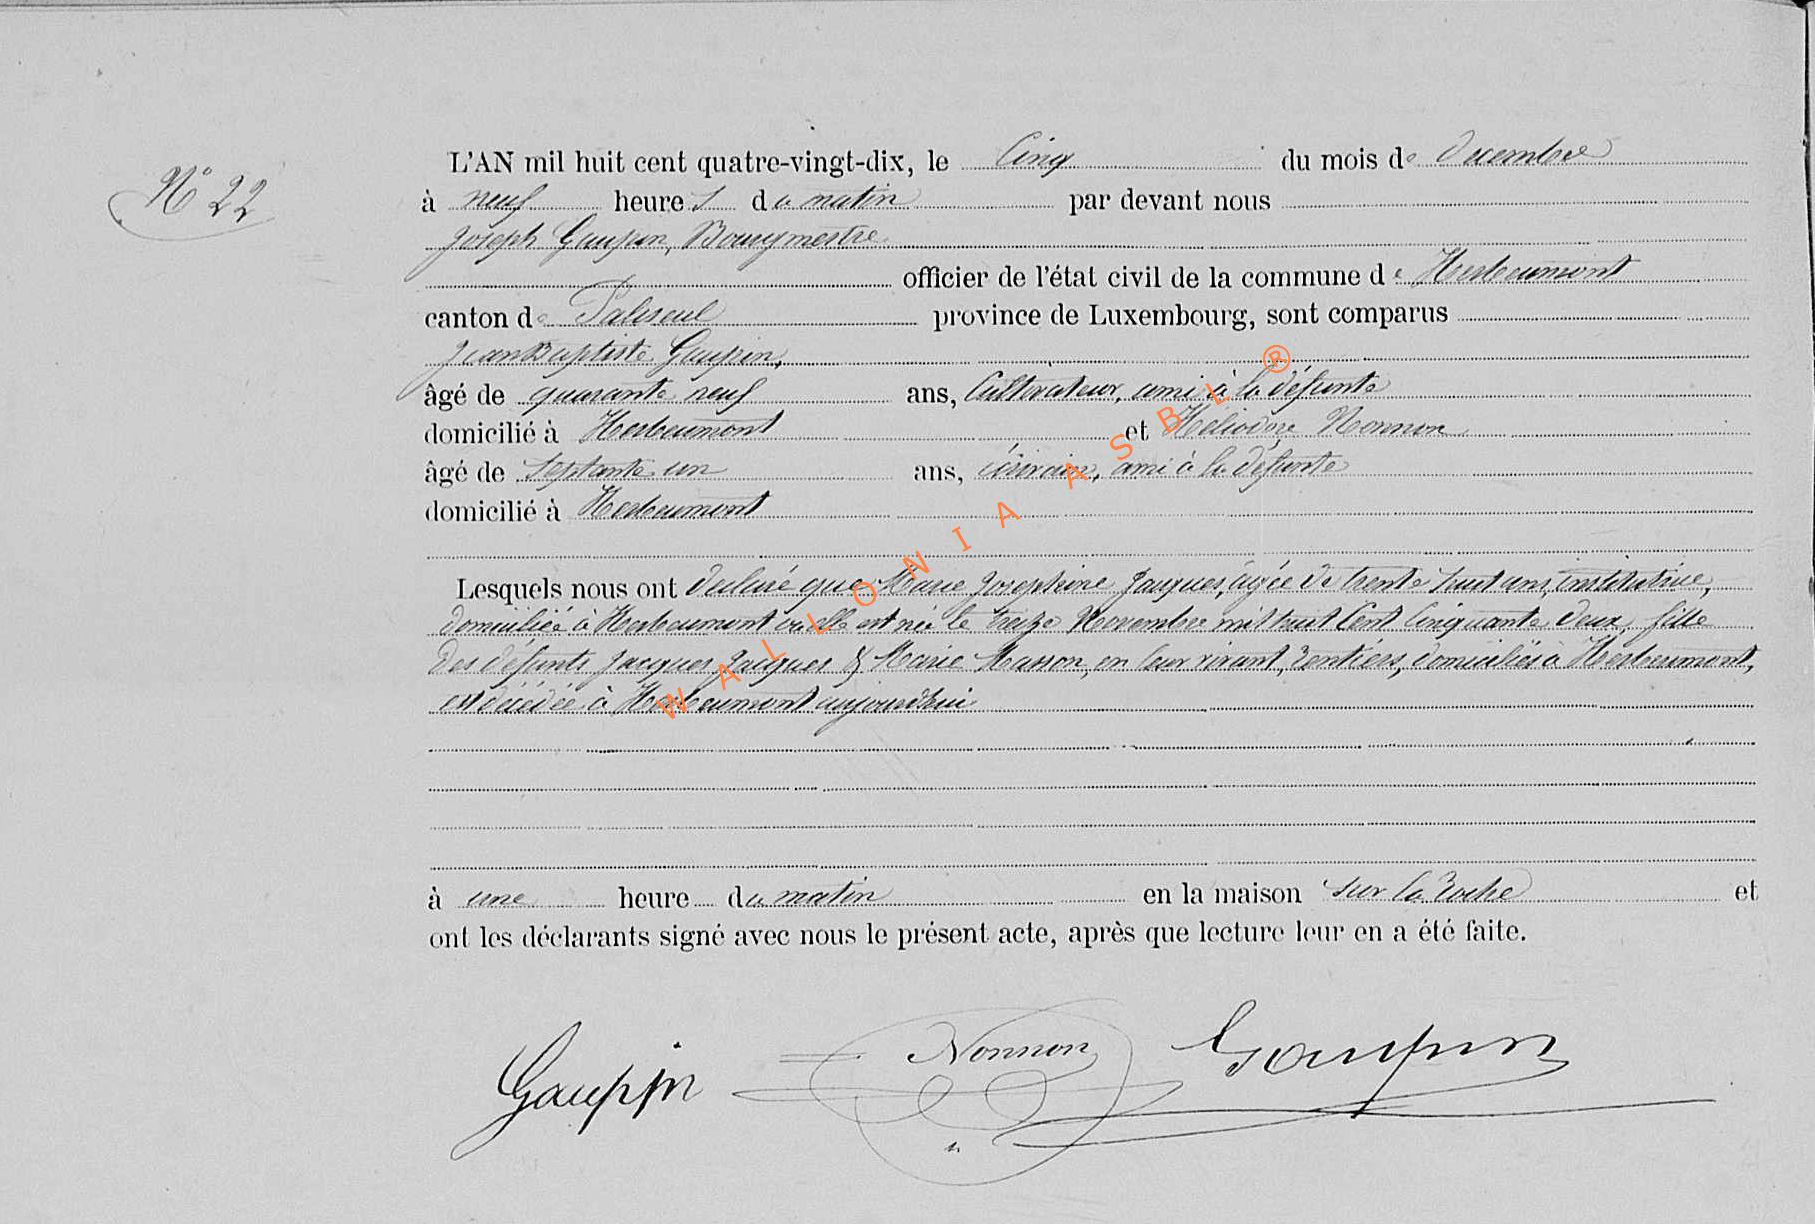 N° 22
L'AN mil huit cent quatre-vingt-dix, le Cinq du mois de decembre
à neuf heures du matin par devant nous
Joseph Gaupin, Bourgmestre
officier de l'état civil de la commune de Herbeumont
canton de Paliseul province de Luxembourg, sont comparus
Jean Baptiste Gaupin,
âgé de quarante neuf ans, Cultivateur, ami à la défunte
domicilié à Herbeumont et Héliodore Nonnon
âgé de septante un ans, écrivain, ami à la défunte
domicilié à Herbeumont
Lesquels nous ont déclaré que Marie Josephine Jacques, âgée de trente huit ans, institutrice,
domiciliée à Herbeumont où elle est née le treize Novembre mil huit Cent Cinquante deux, fille
des défunts Jacques Jacques & Marie Masson, en leur vivant, rentiers, domiciliés à Herbeumont,
est décédée à Herbeumont aujourd'hui
à une heure du matin en la maison sur la roche et
ont les déclarants signé avec nous le présent acte, après que lecture leur en a été faite.
Gaupin Nonnon Gaupin
WALLONIA ASBL ®